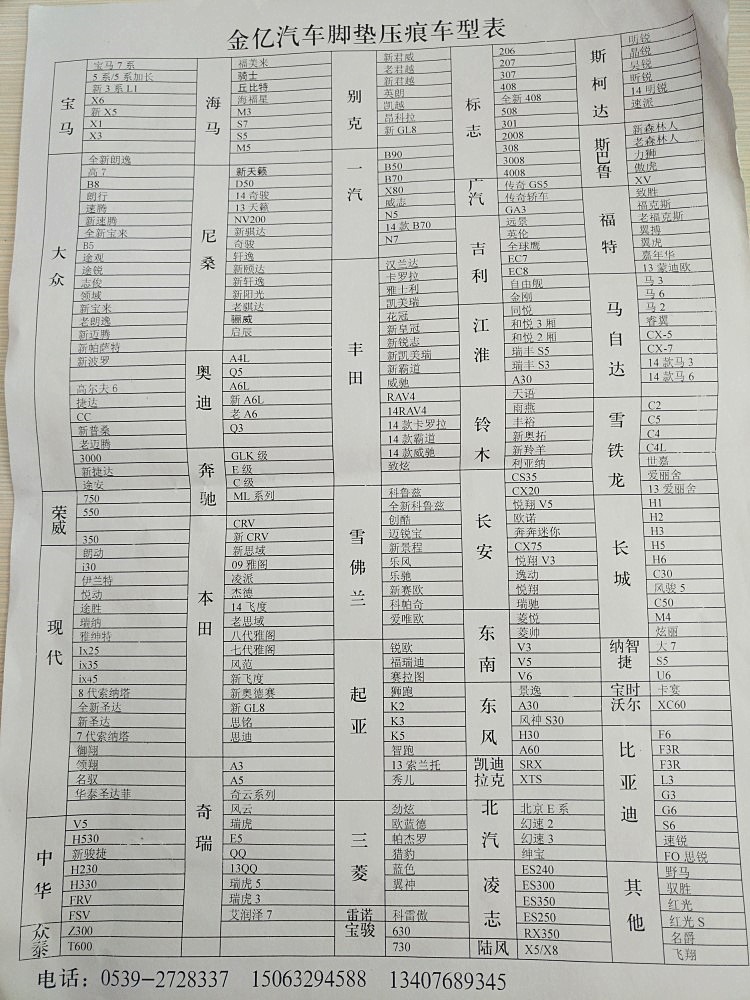 金亿汽车脚垫压痕车型表
宝马
宝马 7 系
5 系/5 系加长
新 3 系 L1
X6
新 X5
X1
X3
大众
全新朗逸
高 7
B8
朗行
速腾
新速腾
全新宝来
B5
途观
途锐
志俊
领域
新宝来
老朗逸
新迈腾
新帕萨特
新波罗
高尔夫 6
捷达
CC
新普桑
老迈腾
3000
新捷达
途安
荣威
750
550
350
现代
朗动
i30
伊兰特
悦动
途胜
瑞纳
雅绅特
Ix25
ix35
ix45
8 代索纳塔
全新圣达
新圣达
7 代索纳塔
御翔
领翔
名驭
华泰圣达菲
中华
V5
H530
新骏捷
H230
H330
FRV
FSV
众泰
Z300
T600
海马
福美来
骑士
丘比特
海福星
M3
S7
S5
M5
尼桑
新天籁
D50
14 奇骏
13 天籁
NV200
新骐达
奇骏
轩逸
新颐达
新轩逸
新阳光
老骐达
骊威
启辰
奥迪
A4L
Q5
A6L
新 A6L
老 A6
Q3
奔驰
GLK 级
E 级
C 级
ML 系列
本田
CRV
新 CRV
新思域
09 雅阁
凌派
杰德
14 飞度
老思域
八代雅阁
七代雅阁
风范
新飞度
新奥德赛
新 GL8
思铭
思迪
奇瑞
A3
A5
奇云系列
风云
瑞虎
E5
QQ
13QQ
瑞虎 5
瑞虎 3
艾润泽 7
别克
新君威
老君越
新君越
英朗
凯越
昂科拉
新 GL8
一汽
B90
B50
B70
X80
威志
N5
14 款 B70
N7
丰田
汉兰达
卡罗拉
雅士利
凯美瑞
花冠
新皇冠
新锐志
新凯美瑞
新霸道
威驰
RAV4
14RAV4
14 款卡罗拉
14 款霸道
14 款威驰
致炫
雪佛兰
科鲁兹
全新科鲁兹
创酷
迈锐宝
新景程
乐风
乐驰
新赛欧
科帕奇
爱唯欧
起亚
锐欧
福瑞迪
赛拉图
狮跑
K2
K3
K5
智跑
13 索兰托
秀儿
三菱
劲炫
欧蓝德
帕杰罗
猎豹
蓝色
翼神
雷诺
科雷傲
宝骏
630
730
标志
206
207
307
408
全新 408
508
301
2008
308
3008
4008
广汽
传奇 GS5
传奇轿车
GA3
吉利
远景
英伦
全球鹰
EC7
EC8
自由舰
金刚
江淮
同悦
和悦 3 厢
和悦 2 厢
瑞丰 S5
瑞丰 S3
A30
铃木
天语
雨燕
丰裕
新奥拓
新羚羊
利亚纳
长安
CS35
CX20
悦翔 V5
欧诺
奔奔迷你
CX75
悦翔 V3
逸动
悦翔
瑞驰
东南
菱悦
菱帅
V3
V5
V6
东风
景逸
A30
风神 S30
H30
A60
凯迪拉克
SRX
XTS
北汽
北京 E 系
幻速 2
幻速 3
绅宝
凌志
ES240
ES300
ES350
ES250
RX350
陆风
X5/X8
斯柯达
明锐
晶锐
昊锐
昕锐
14 明锐
速派
斯巴鲁
新森林人
老森林人
力狮
傲虎
XV
福特
致胜
福克斯
老福克斯
翼搏
翼虎
嘉年华
13 蒙迪欧
马自达
马 3
马 6
马 2
睿翼
CX-5
CX-7
14 款马 3
14 款马 6
雪铁龙
C2
C5
C4
C4L
世嘉
爱丽舍
13 爱丽舍
长城
H1
H2
H3
H5
H6
C30
风骏 5
C50
M4
炫丽
纳智捷
大 7
S5
U6
宝时
卡宴
沃尔
XC60
比亚迪
F6
F3R
F3R
L3
G3
G6
S6
速锐
FO 思锐
其他
野马
驭胜
红光
红光 S
名爵
飞翔
电话：0539-2728337 15063294588 13407689345